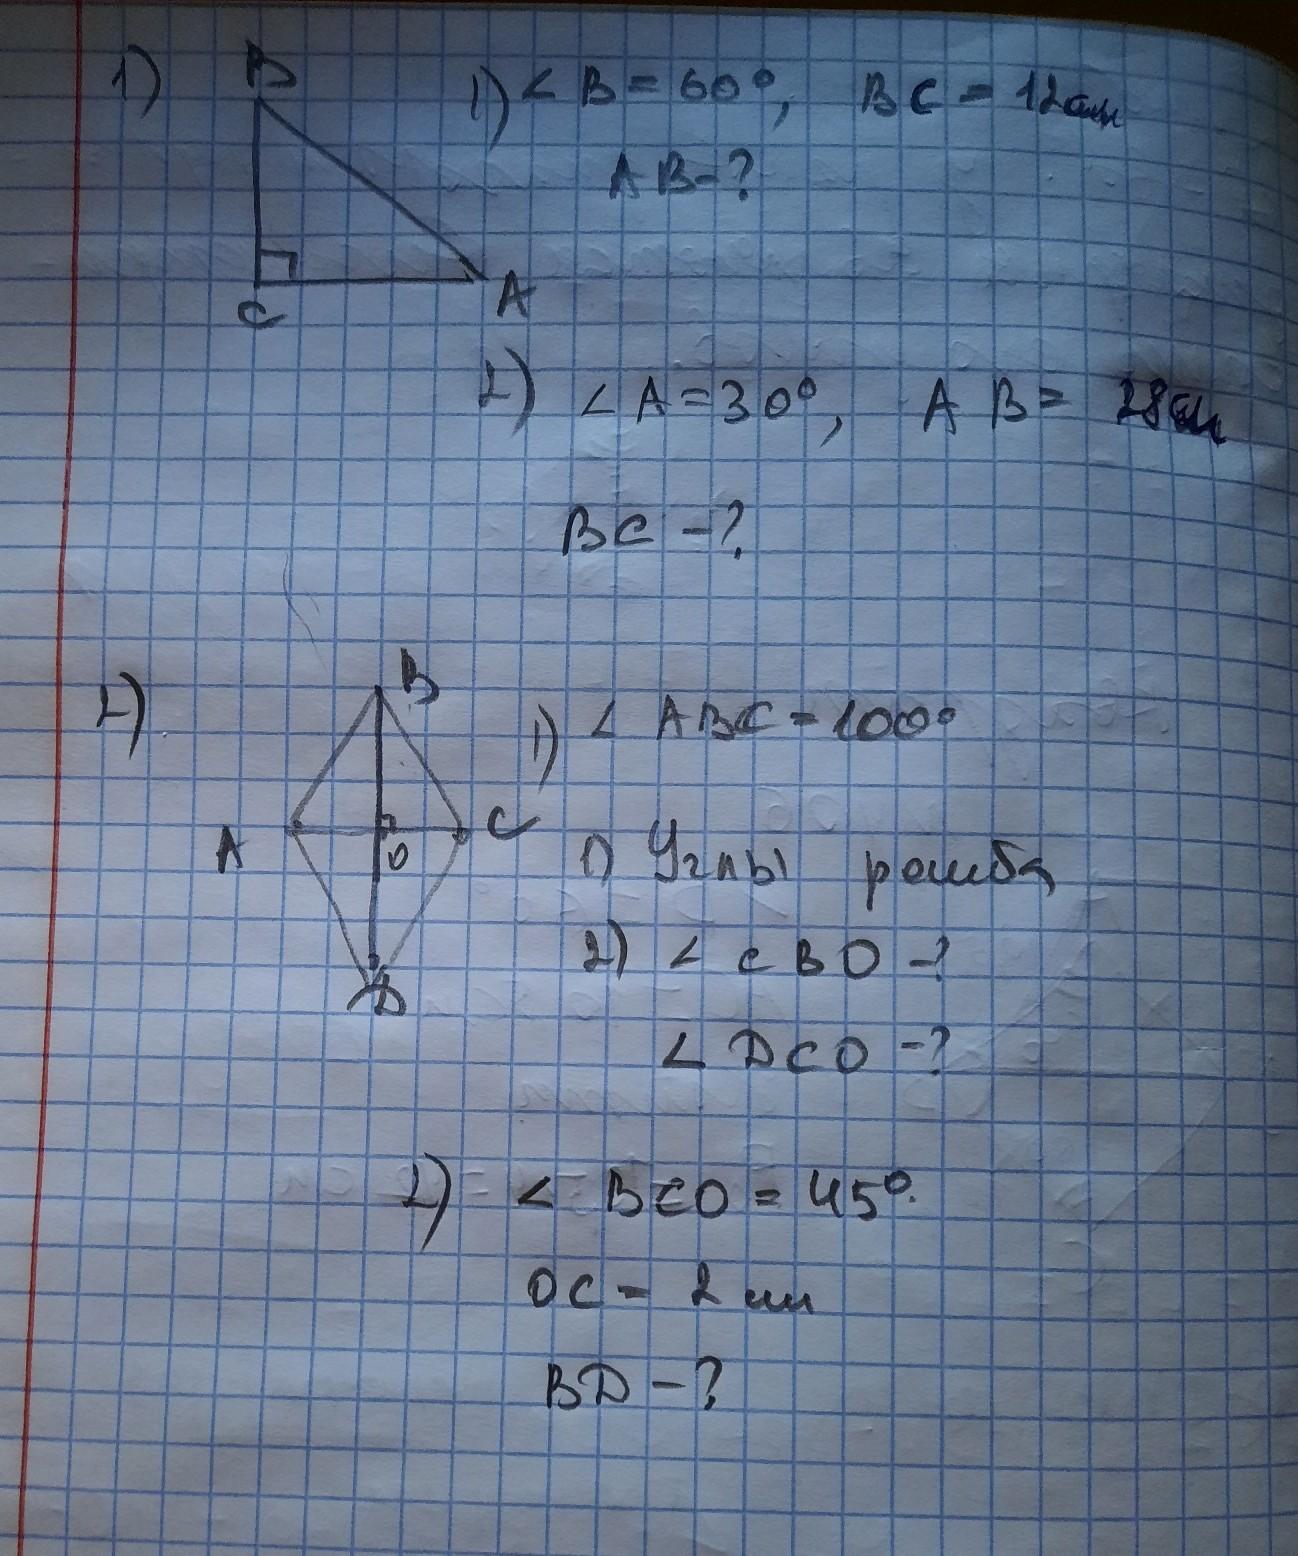 1)
B
C
A
1) < B = 60°, BC = 12см
AB - ?
2) < A = 30°, AB = 28см
BC - ?
2)
B
A
C
O
D
1) < ABC = 100°
1) Углы ромба
2) < CBO - ?
< DCO - ?
2) < BCO = 45°.
OC - 2 см
BD - ?